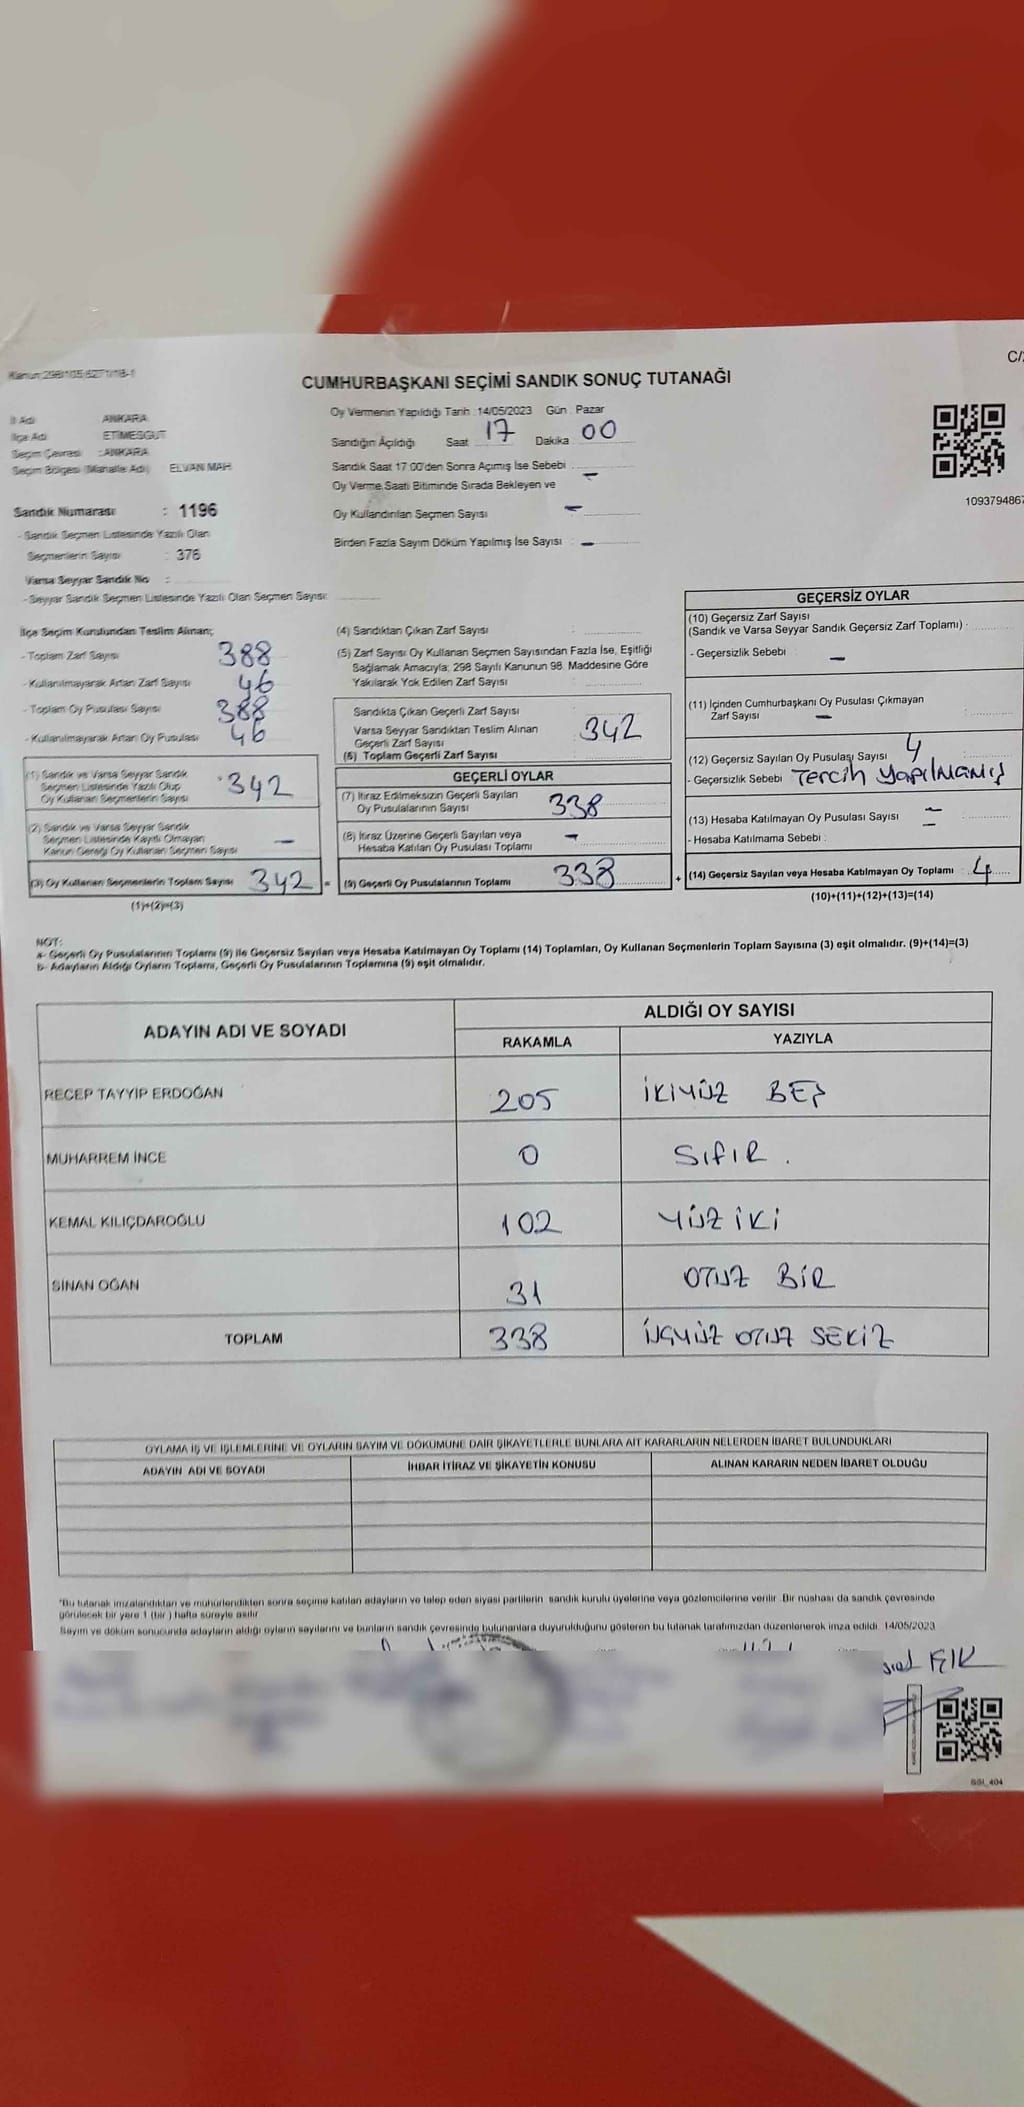 Kanun:298/105-6271/18-1
C/
CUMHURBAŞKANI SEÇİMİ SANDIK SONUÇ TUTANAĞI
İl Adı ANKARA
İlçe Adı ETİMESGUT
Seçim Çevresi :ANKARA
Seçim Bölgesi (Mahalle Adı) ELVAN MAH
Sandık Numarası : 1196
- Sandık Seçmen Listesinde Yazılı Olan
Seçmenlerin Sayısı : 376
Varsa Seyyar Sandık No :
- Seyyar Sandık Seçmen Listesinde Yazılı Olan Seçmen Sayısı:
Oy Vermenin Yapıldığı Tarih : 14/05/2023 Gün : Pazar
Sandığın Açıldığı Saat 17 Dakika 00
Sandık Saat 17:00'den Sonra Açımış İse Sebebi : -
Oy Verme Saati Bitiminde Sırada Bekleyen ve
Oy Kullandırılan Seçmen Sayısı -
Birden Fazla Sayım Döküm Yapılmış İse Sayısı : -
1093794867
İlçe Seçim Kurulundan Teslim Alınan;
- Toplam Zarf Sayısı 388
- Kullanılmayarak Artan Zarf Sayısı 46
- Toplam Oy Pusulası Sayısı 388
- Kullanılmayarak Artan Oy Pusulası 46
(1) Sandık ve Varsa Seyyar Sandık
Seçmen Listesinde Yazılı Olup
Oy Kullanan Seçmenlerin Sayısı 342
(2) Sandık ve Varsa Seyyar Sandık
Seçmen Listesinde Kayıtlı Olmayan
Kanun Gereği Oy Kullanan Seçmen Sayısı -
(3) Oy Kullanan Seçmenlerin Toplam Sayısı 342 =
(1)+(2)=(3)
(4) Sandıktan Çıkan Zarf Sayısı :
(5) Zarf Sayısı Oy Kullanan Seçmen Sayısından Fazla İse, Eşitliği
Sağlamak Amacıyla; 298 Sayılı Kanunun 98. Maddesine Göre
Yakılarak Yok Edilen Zarf Sayısı :
Sandıkta Çıkan Geçerli Zarf Sayısı
Varsa Seyyar Sandıktan Teslim Alınan
Geçerli Zarf Sayısı
(6) Toplam Geçerli Zarf Sayısı : 342
GEÇERLİ OYLAR
(7) İtiraz Edilmeksizin Geçerli Sayılan
Oy Pusulalarının Sayısı 338
(8) İtiraz Üzerine Geçerli Sayılan veya
Hesaba Katılan Oy Pusulası Toplamı -
(9) Geçerli Oy Pusulalarının Toplamı 338 +
GEÇERSİZ OYLAR
(10) Geçersiz Zarf Sayısı
(Sandık ve Varsa Seyyar Sandık Geçersiz Zarf Toplamı) :
- Geçersizlik Sebebi : -
(11) İçinden Cumhurbaşkanı Oy Pusulası Çıkmayan
Zarf Sayısı : -
(12) Geçersiz Sayılan Oy Pusulası Sayısı : 4
- Geçersizlik Sebebi : Tercih Yapılmamış
(13) Hesaba Katılmayan Oy Pusulası Sayısı : -
- Hesaba Katılmama Sebebi : -
(14) Geçersiz Sayılan veya Hesaba Katılmayan Oy Toplamı : 4
(10)+(11)+(12)+(13)=(14)
NOT:
a- Geçerli Oy Pusulalarının Toplamı (9) ile Geçersiz Sayılan veya Hesaba Katılmayan Oy Toplamı (14) Toplamları, Oy Kullanan Seçmenlerin Toplam Sayısına (3) eşit olmalıdır. (9)+(14)=(3)
b- Adayların Aldığı Oyların Toplamı, Geçerli Oy Pusulalarının Toplamına (9) eşit olmalıdır.
ADAYIN ADI VE SOYADI ALDIĞI OY SAYISI
RAKAMLA YAZIYLA
RECEP TAYYİP ERDOĞAN 205 İKİYÜZ BEŞ
MUHARREM İNCE 0 SIFIR.
KEMAL KILIÇDAROĞLU 102 YÜZ İKİ
SİNAN OĞAN 31 OTUZ BİR
TOPLAM 338 ÜÇYÜZ OTUZ SEKİZ
OYLAMA İŞ VE İŞLEMLERİNE VE OYLARIN SAYIM VE DÖKÜMÜNE DAİR ŞİKAYETLERLE BUNLARA AİT KARARLARIN NELERDEN İBARET BULUNDUKLARI
ADAYIN ADI VE SOYADI İHBAR İTİRAZ VE ŞİKAYETİN KONUSU ALINAN KARARIN NEDEN İBARET OLDUĞU
*Bu tutanak imzalandıktan ve mühürlendikten sonra seçime katılan adayların ve talep eden siyasi partilerin sandık kurulu üyelerine veya gözlemcilerine verilir. Bir nüshası da sandık çevresinde
görülecek bir yere 1 (bir) hafta süreyle asılır.
Sayım ve döküm sonucunda adayların aldığı oyların sayılarını ve bunların sandık çevresinde bulunanlara duyurulduğunu gösteren bu tutanak tarafımızdan düzenlenerek imza edildi. 14/05/2023